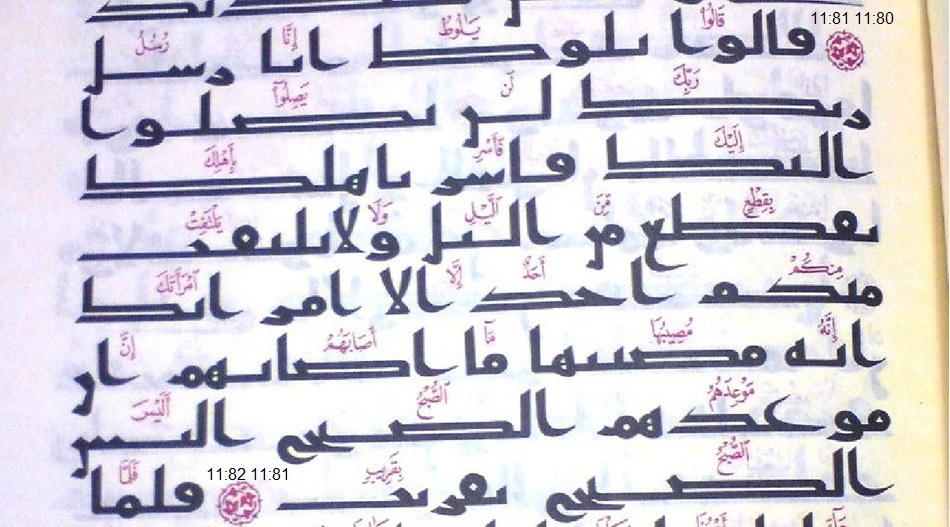 11:81 11:80
قالوا يلوط انا رسل
ربك لن يصلوا
اليك فاسر باهلك
بقطع من اليل ولا يلتفت
منكم احد الا امراتك
انه مصيبها ما اصابهم ان
موعدهم الصبح اليس
الصبح بقريب 11:82 11:81 فلما
قَالُوا يَلُوطُ إِنَّا رُسُلُ
رَبِّكَ لَن يَصِلُوٓا
إِلَيْكَ فَأَسْرِ بِأَهْلِكَ
بِقِطْعٍ مِّنَ ٱلَّيْلِ وَلَا يَلْتَفِتْ
مِنكُمْ أَحَدٌ إِلَّا ٱمْرَأَتَكَ
إِنَّهُ مُصِيبُهَا مَآ أَصَابَهُمْ إِنَّ
مَوْعِدَهُمُ ٱلصُّبْحُ أَلَيْسَ
ٱلصُّبْحُ بِقَرِيبٍ فَلَمَّا